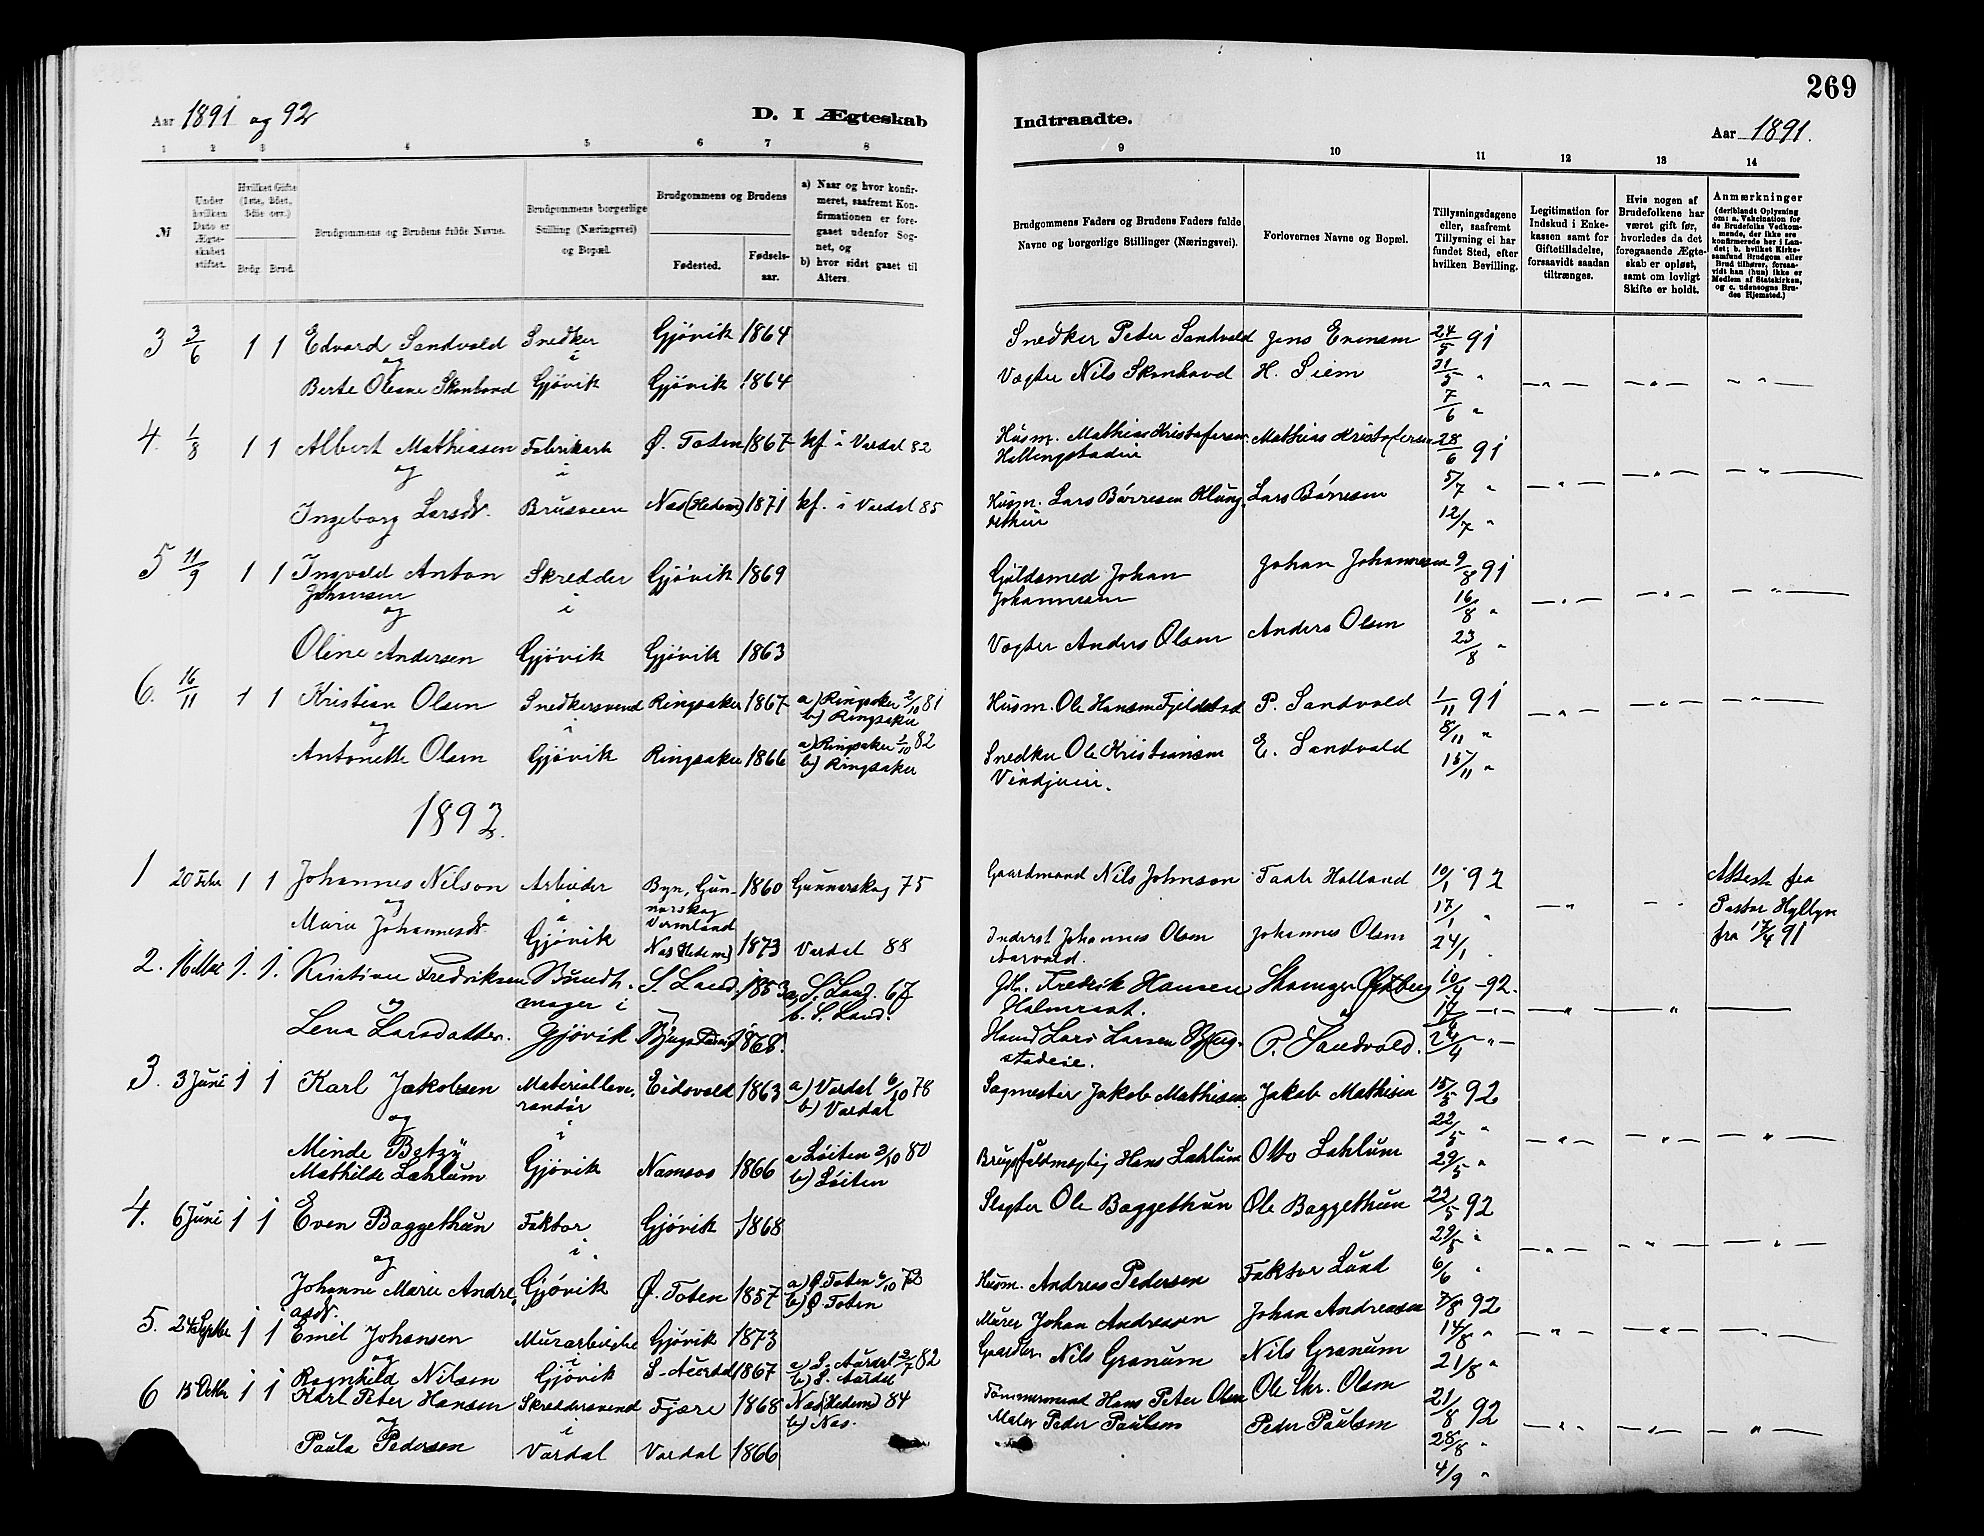 269
Aar 1891 og 92
D. I Ægteskab
Indtraadte.
Aar 1891.
1 2 3 4 5 6 7 8
9 10 11 12 13 14
№
Under hvilken Dato er Ægteskabet stiftet.
Hvilket Gifte (1ste, 2det, 3die osv.)
Brdg. Brud.
Brudgommens og Brudens fulde Navne.
Brudgommens borgerlige Stilling (Næringsvei) og Bopæl.
Brudgommens og Brudens
Fødested.
Fødselsaar.
a) Naar og hvor konfirmeret, saafremt Konfirmationen er foregaaet udenfor Sognet, og
b) hvor sidst gaaet til Alters.
Brudgommens Faders og Brudens Faders fulde Navne og borgerlige Stillinger (Næringsvei).
Forlovernes Navne og Bopæl.
Tillysningsdagene eller, saafremt Tillysning ei har fundet Sted, efter hvilken Bevilling.
Legitimation for Indskud i Enkekassen samt for Giftetilladelse, forsaavidt saadan tiltrænges.
Hvis nogen af Brudefolkene har været gift før, hvorledes da det foregaaende Ægteskab er opløst, samt om lovligt Skifte er holdt.
Anmærkninger
(deriblandt Oplysning om: a. Vakcination for de Brudefolks Vedkommende, der ikke ere konfirmerede her i Landet; b. hvilket Kirkesamfund Brudgom eller Brud tilhører, forsaavidt han (hun) ikke er Medlem af Statskirken, og c. udensogns Brudes Hjemsted.)
3 3/6 1 1 Edvard Sandvold Snedker Gjøvik 1864 Snedker Peter Sandvold Jens Evensen 24/5 91
og i
Berte Olesne Gjøvik Gjøvik 1864 Vægter Nils H. Siem 31/5 "
7/6 "
4. 1/8 1 1 Albert Mathiasen Fabrikarb. Ø. Toten 1867 kf. i Vardal 82 Husm. Mathias Kristofersen Mathias Kristofersen 28/6 91
og i
Ingeborg Larsdr. Nas (Hedem) 1871 kf. i Vardal 85 Husm. Lars Børresen Lars Børresen 5/7 "
12/7 "
5 11/9 1 1 Ingvald Anton Skredder Gjøvik 1869 Guldsmed Johan Johan Johannesen 9/8 91
Johansen i Johannesen 16/8 "
og
Oline Andersen Gjøvik Gjøvik 1863 Vægter Anders Olsen Anders Olsen 23/8 "
6. 16/11 1 1 Kristian Olsen Snedkersvend Ringsaker 1867 a) Ringsaker 2/10 81 Husm. Ole Hansen Fjeldstad P. Sandvold 1/11 91
og i b) Ringsaker 8/11 "
Antonette Olsen Gjøvik Ringsaker 1866 a) Ringsaker 1/10 82 Snedker Ole Kristiansen E. Sandvald 15/11 "
b) Ringsaker
1892.
1 20 Febr 1 1 Johannes Nilson Arbeider Byn, Gun- 1860 Gunnarskog 75 Gaardmand Nils Johnson Taale Holland 10/1 92 Attest fra
og i narskog 17/1 " Pastor
Vermland fra 17/4 91
Marie Johannesdr Gjøvik Nas (Hedem) 1873 Vardal 88 Inderst Johannes Olsen Johannes Olsen 24/1 "
2. 16 Mai 1. 1. Kristian Fredriksen Bundt- S. Land 1853 a. S. Land. 67 Fredrik Hansen 10/4 -92.
og mager i b. S. Land. 17/4
Lena Larsdatter. Gjøvik 1868. Lars Larsen P. Sandvold. 24/4 -"-
3. 3 Juni 1 1 Karl Jakobsen Materialleve- Eidsvold 1863 a) Vardal 6/10 78 Sagmester Jakob Mathisen Jakob Mathisen 15/5 92
og randør b) Vardal 22/5 "
Minde Betzy i
Mathilde Lahlum Gjøvik Namsos 1866 a Løiten 3/10 80 Brugsfuldmægtig Hans Lahlum Otto Lahlum 29/5 "
b) Løiten
4. 6 Juni 1 1 Even Baggethun Faktor Gjøvik 1868 Slagter Ole Baggethun Ole Baggethun 22/5 92
og i 29/5 "
Johanne Marie Andre- Gjøvik Ø. Toten 1857 a) Ø Toten 6/10 72 Husm. Andreas Pedersen Faktor Lund 6/6 "
asdr. b) Ø Toten
5. 24 Septbr 1 1 Emil Johansen Murarbeider Gjøvik 1873 Murer Johan Andreasen Johan Andreasen 7/8 92
og i 14/8 "
Ragnhild Nilsen Gjøvik S. Aurdal 1867 a) S. Aurdal 2/7 82 Nils Granum Nils Granum 21/8 "
b) S. Aurdal
6 15 Octbr 1 1 Karl Peter Hansen Skreddersvend Fjære 1868 Nas (Hedem) 84 Tømmermand Hans Peter Olsen Ole Chr. Olsen 21/8 92
og i b) Nas. 28/8 "
Paula Pedersen Vardal Vardal 1866 Maler Peder Paulsen Peder Paulsen 4/9 "